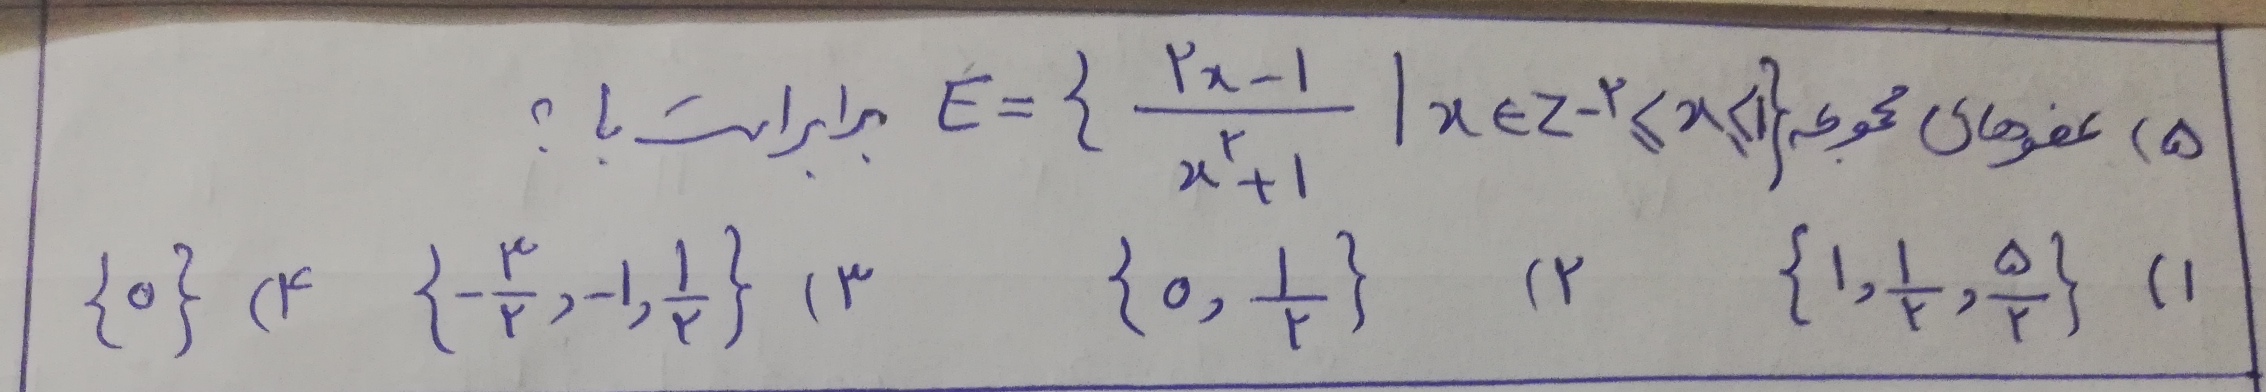 ۵) عضوهای مجموعه E = { (۲x - ۱) / (x^۲ + ۱) | x ∈ Z -۲ ≤ x ≤ ۱ } برابر است با ؟
۱) {۱, ۱/۲, ۵/۲} ۲) {۰, ۱/۲} ۳) {-۳/۲, -۱, ۱/۲} ۴) {۰}